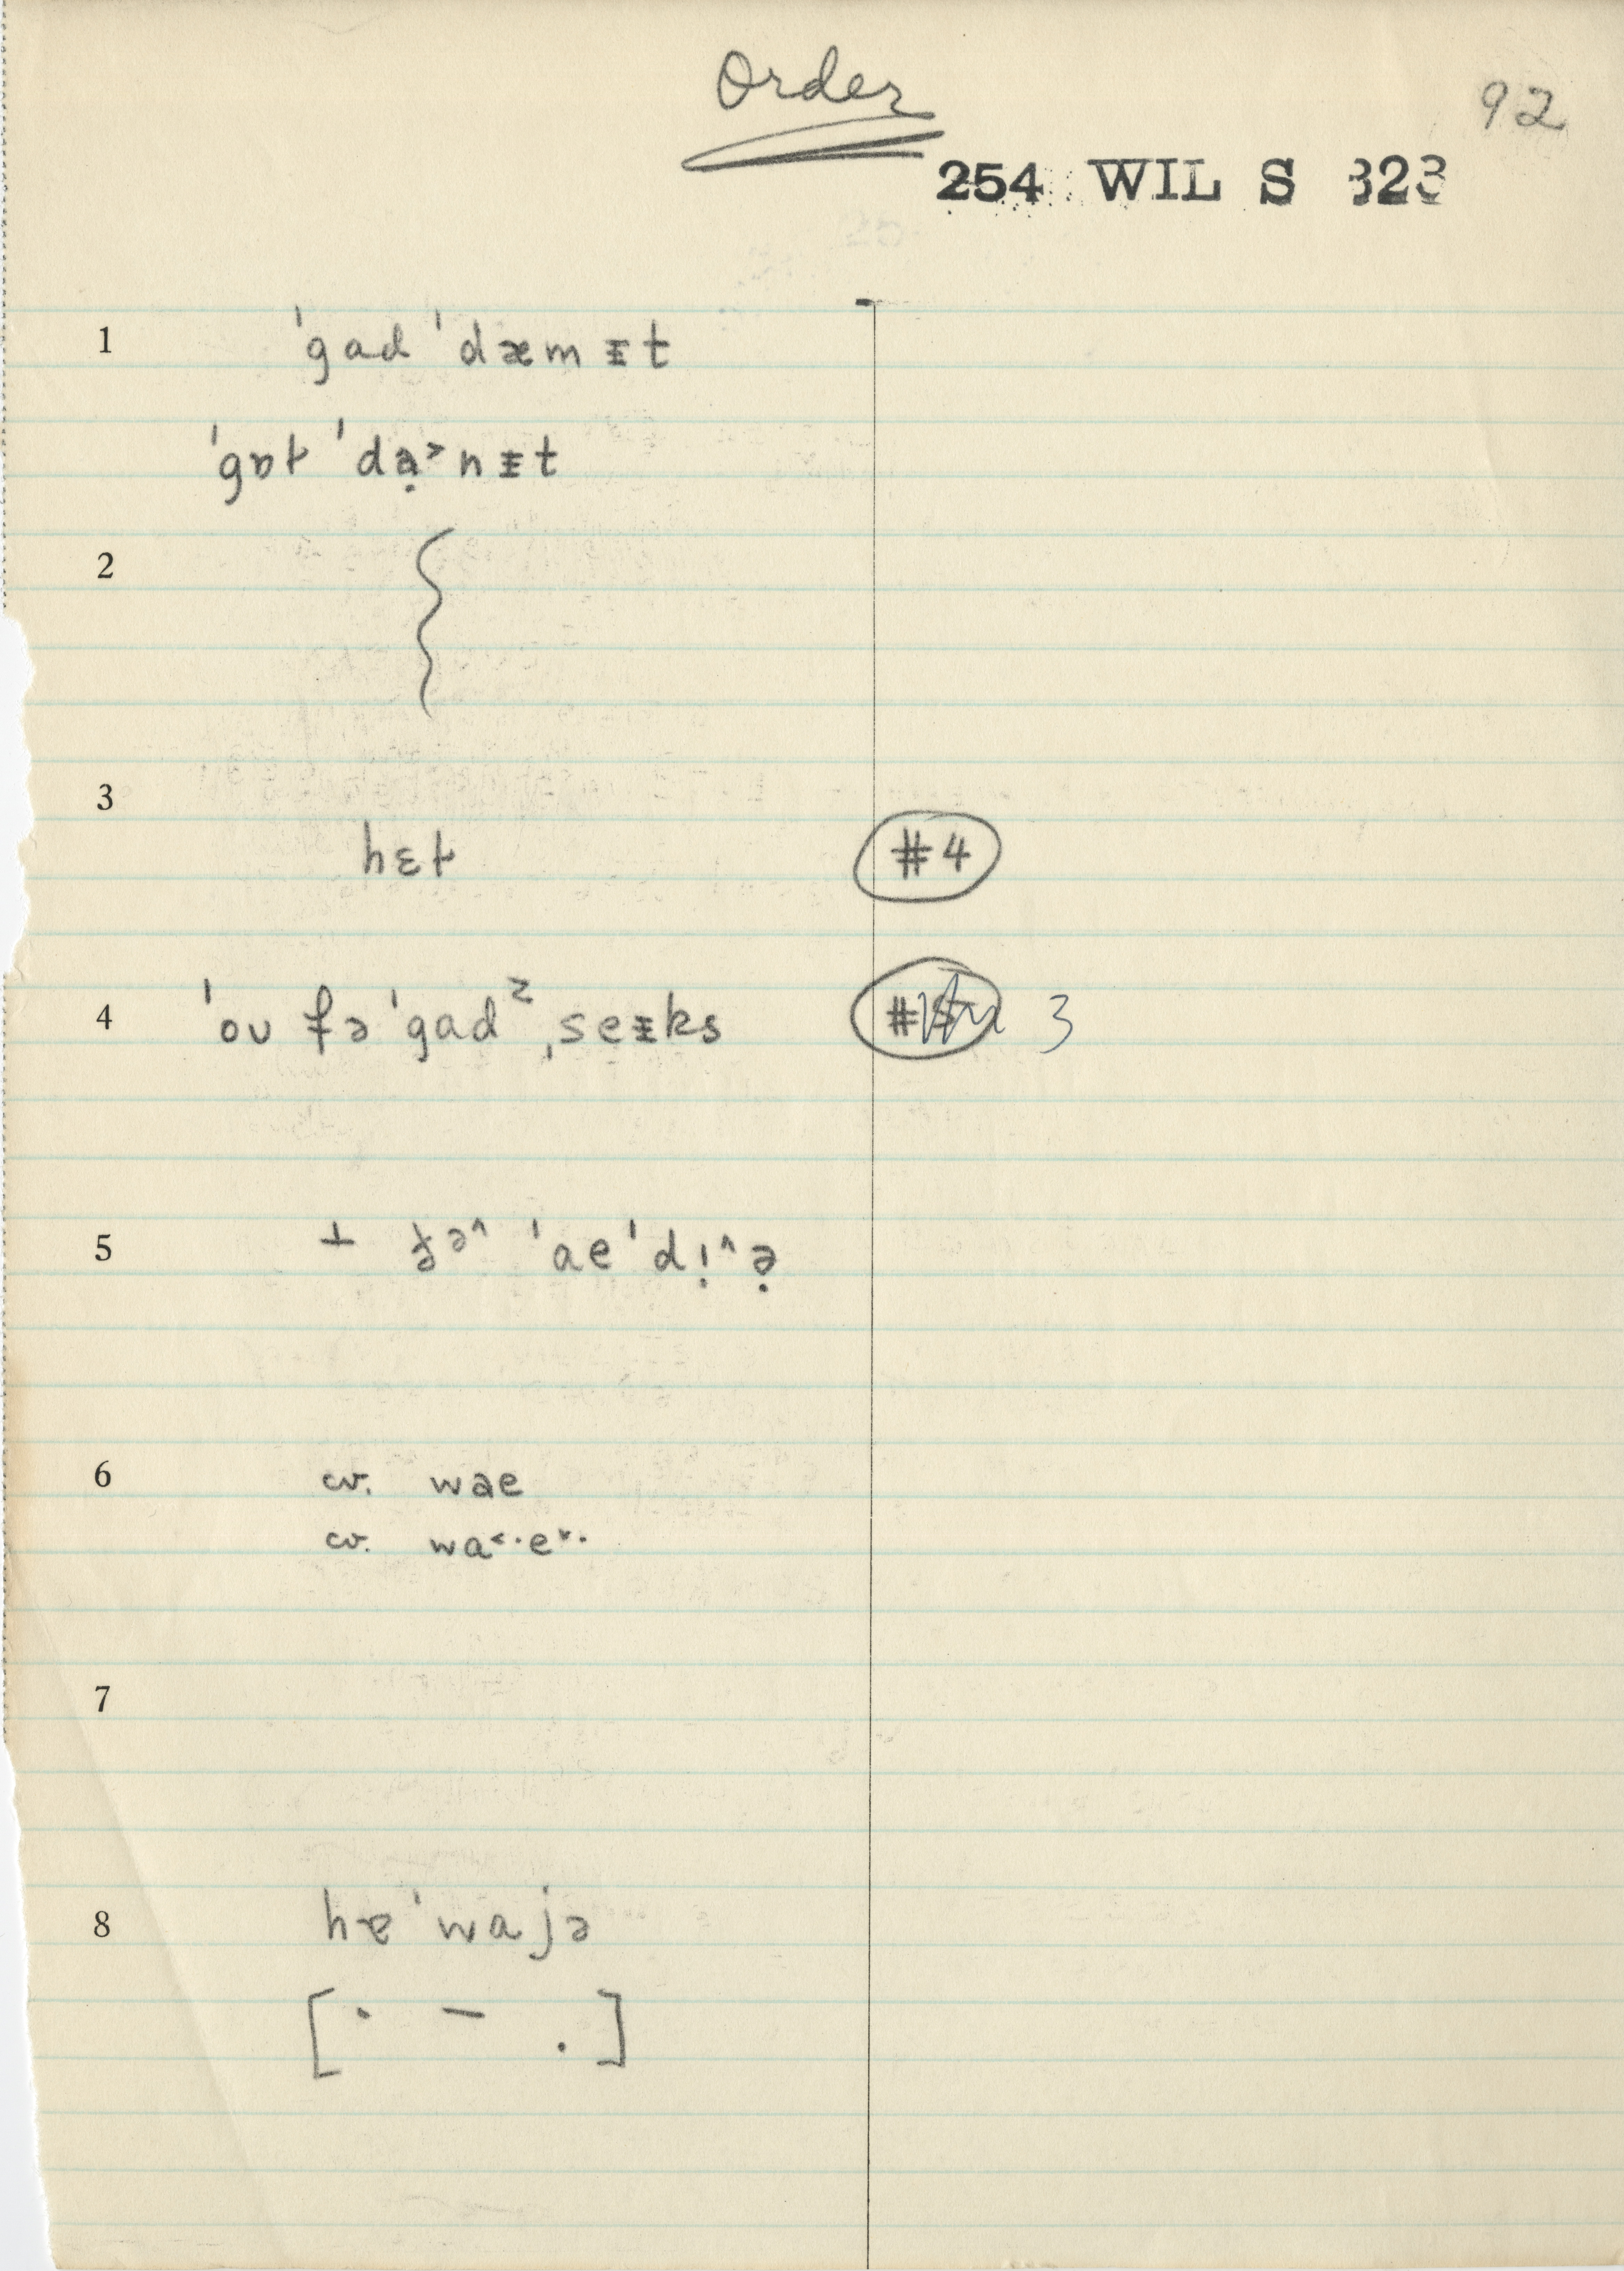 Order
92
254 WIL S 323
1 ˈgad ˈdæmᵻt
ˈgɒt ˈdạ˃nᵻt
2
3
hɛt #4
4 ˈou fə ˈgadᶻ ˌseᵻks 3
5 + fə^ ˈae ˈdị^ə̣
6 cv. wae
cv. wa˂·e˅·
7
8 hɐ ˈwajə
[˙ – .]